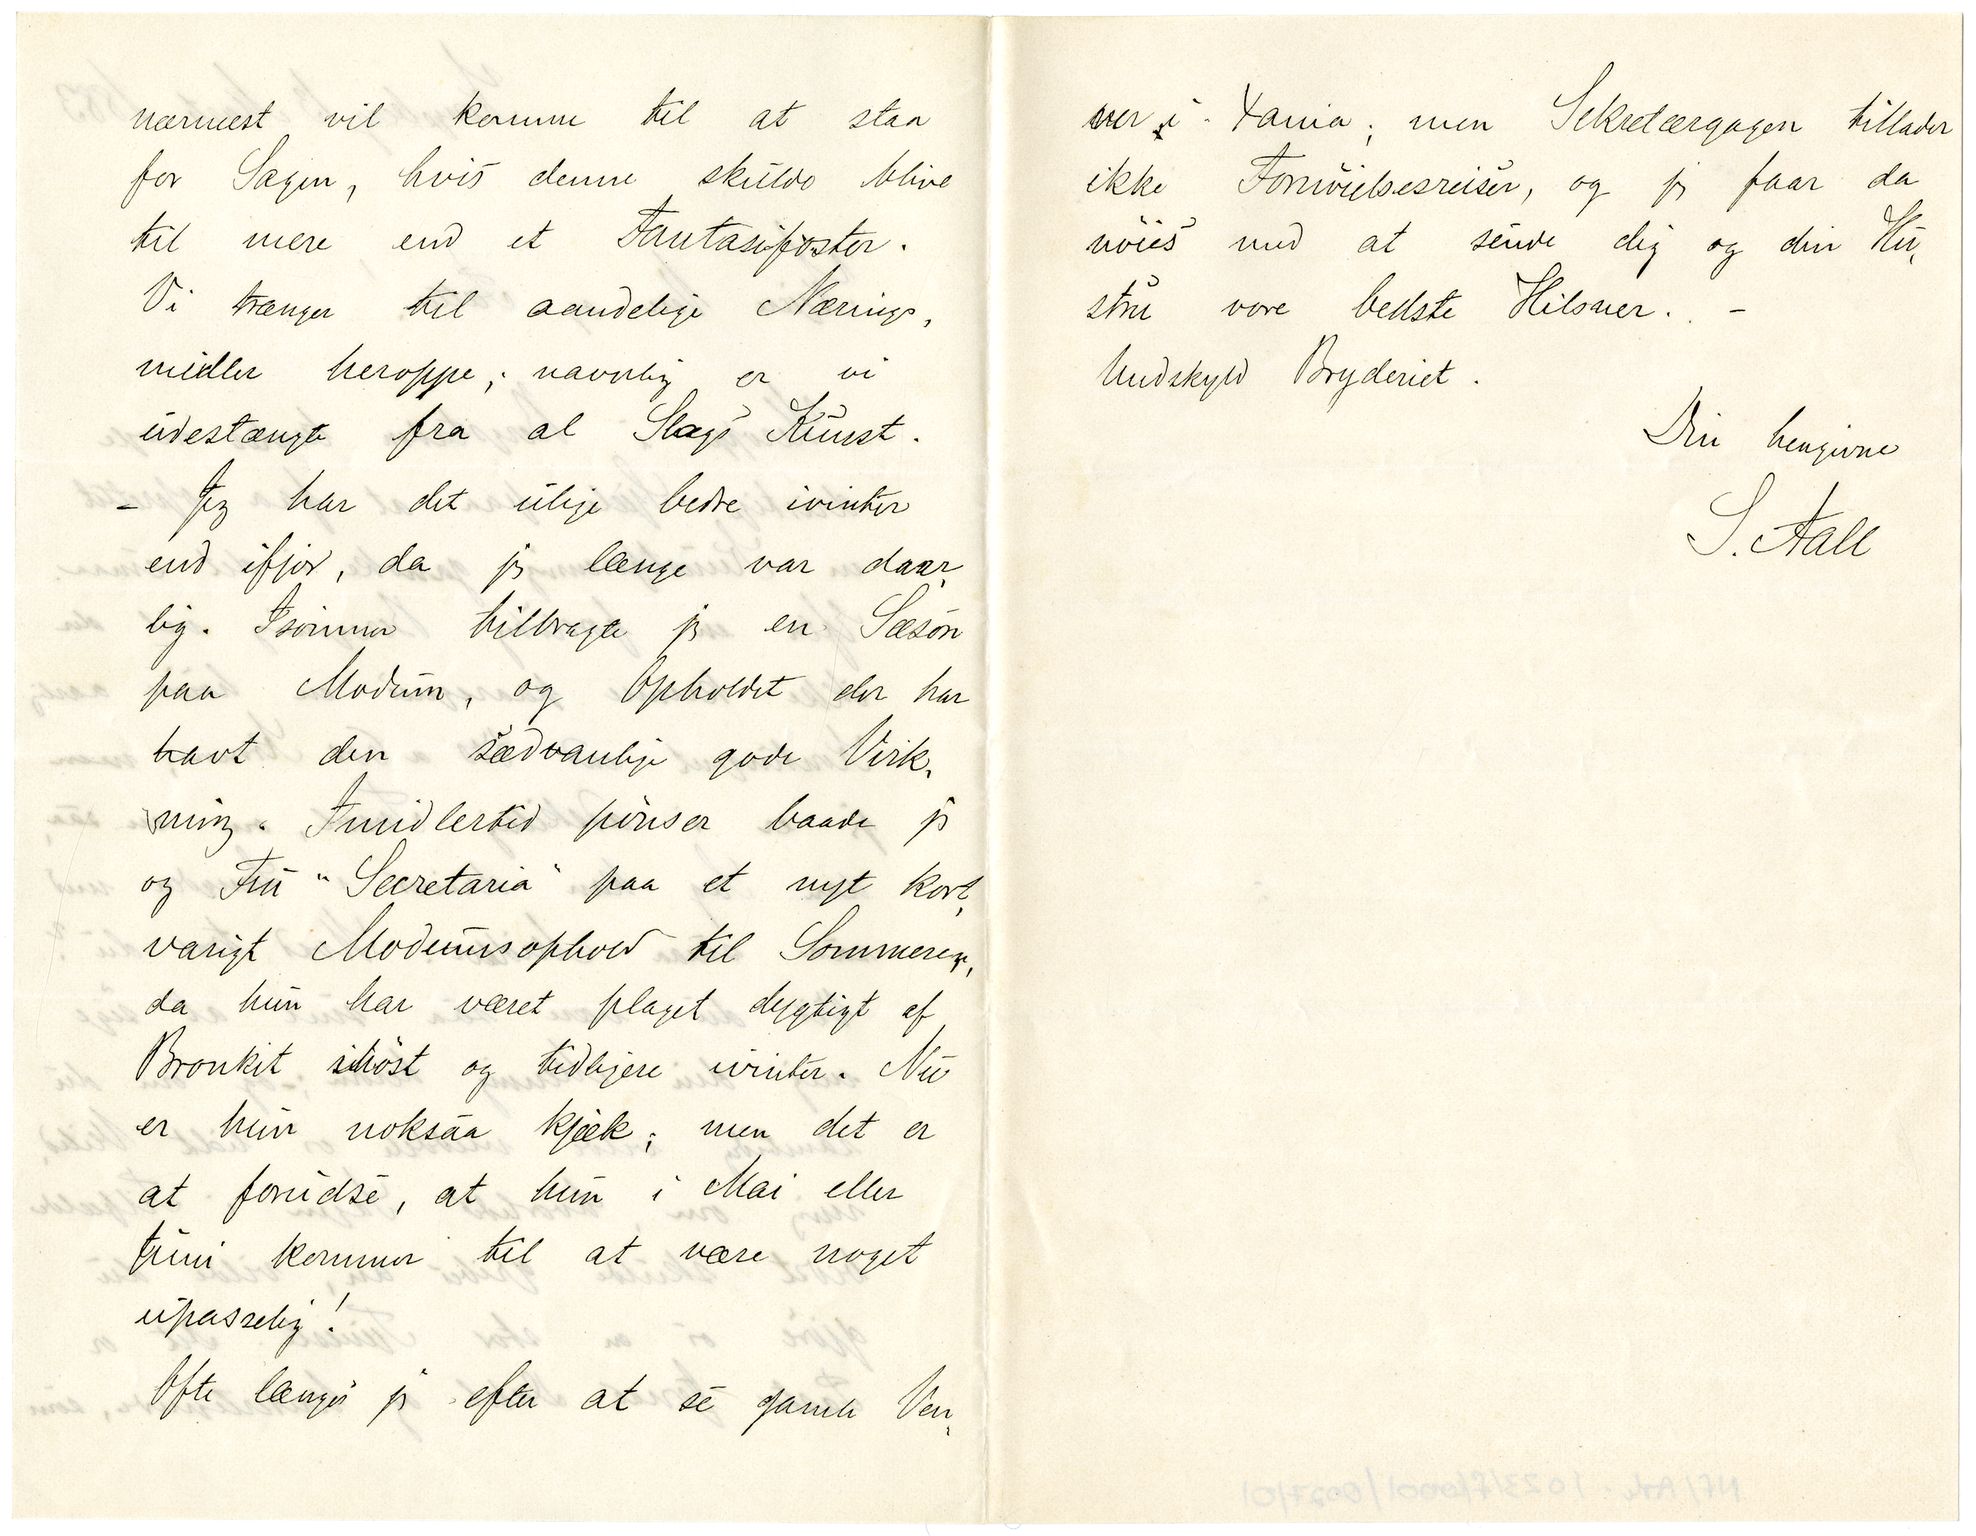 nærmest vil komme til at staa
for Sagen, hvis denne skulde blive
til mere end et Fantasifoster.
Vi trænger til aandelige Nærings,
midler heroppe; navnlig er vi
udestængte fra al Slags Kunst.
- Jeg har det ulige bedre ivinter
end ifjor, da jeg længe var daar,
lig. Isommer tilbragte jeg en Sæson
paa Modum, og Opholdet der har
havt den sædvanlige gode Virk,
ning. Imidlertid pønser baade jeg
og Fru "Secretaria" paa et nyt kort,
varigt Modumsophold til Sommeren,
da hun har været plaget dygtigt af
Bronkit ihøst og tidligere ivinter. Nu
er hun noksaa kjæk; men det er
at forudse, at hun i Mai eller
Juni kommer til at være noget
upasselig!
Ofte længes jeg efter at se gamle Ven,
ner i Xania; men Sekretærgagen tillader
ikke Fornøielsesreiser, og jeg faar da
nøies med at sende dig og din Hu,
stru vore bedste Hilsner. -
Undskyld Bryderiet.
Din hengivne
S. Aall